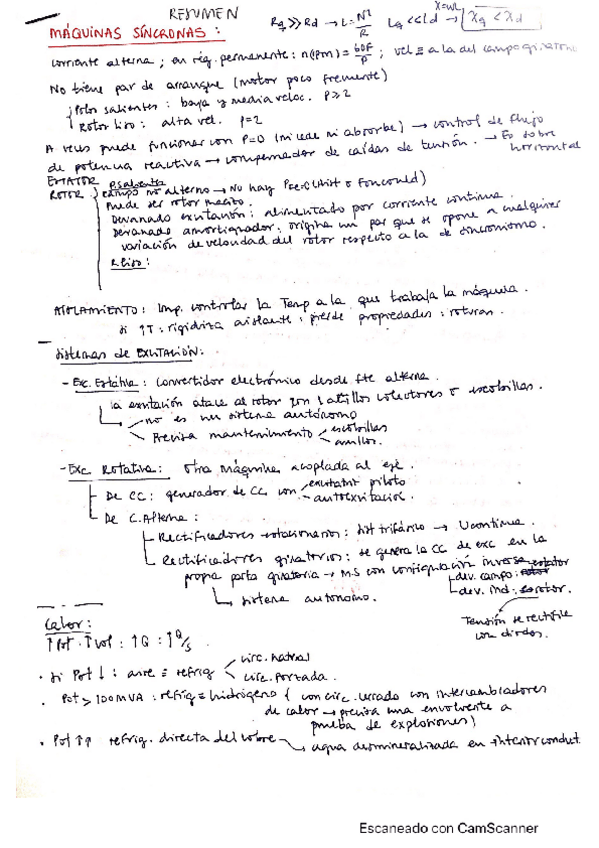 RESUMEN
Rq >> Rd → L = N²/R   Lq << Ld → Xq < Xd
X=wL
MÁQUINAS SÍNCRONAS:
corriente alterna; en rég. permanente: n(rpm) = 60f/P; vel ≡ a la del campo giratorio
No tiene par de arranque (motor poco frecuente)
Polos salientes: baja y media veloc. P≥2
Rotor liso: alta vel. p=2
A veces puede funcionar con P=0 (ni cede ni absorbe) → control de flujo
de potencia reactiva → compensador de caídas de tensión. → Eo sobre
horizontal
ESTATOR
ROTOR P. salientes campo no alterno → No hay Pfe
Puede ser rotor macizo.
Devanado excitación: alimentado por corriente continua.
Devanado amortiguador: origina un par que se opone a cualquier
variación de velocidad del rotor respecto a la de sincronismo.
R liso:
AISLAMIENTO: Imp. controlar la Temp a la que trabaja la máquina.
si ↑T: rigidiza aislante: pierde propiedades: roturas.
Sistemas de EXCITACIÓN:
- Exc. Estática: Convertidor electrónico desde fte alterna.
la excitación atace al rotor con anillos colectores o escobillas.
no es un sistema autónomo
Precisa mantenimiento escobillas
anillos.
- Exc Rotativa: Otra máquina acoplada al eje.
De CC: generador de CC con excitatriz piloto
autoexcitación.
De C. Alterna:
Rectificadores estacionarios: sist trifásico → U continua.
Rectificadores giratorios: se genera la CC de exc en la
propia parte giratoria → MS con configuración inversa
dev. campo: estator
dev. ind: rotor.
sistema autónomo.
Tensión se rectifica
con diodos.
Calor:
↑Pot. ↑Vol: ↑Q: ↑Q/S
· Si Pot ↓: aire ≡ refrig circ. natural
circ. forzada.
· Pot > 100MVA: refrig = hidrógeno (con circ. cerrado con intercambiadores
de calor → precisa una envolvente a
prueba de explosiones)
· Pot ↑↑ refrig. directa del cobre agua desmineralizada en interior conduct.
Escaneado con CamScanner